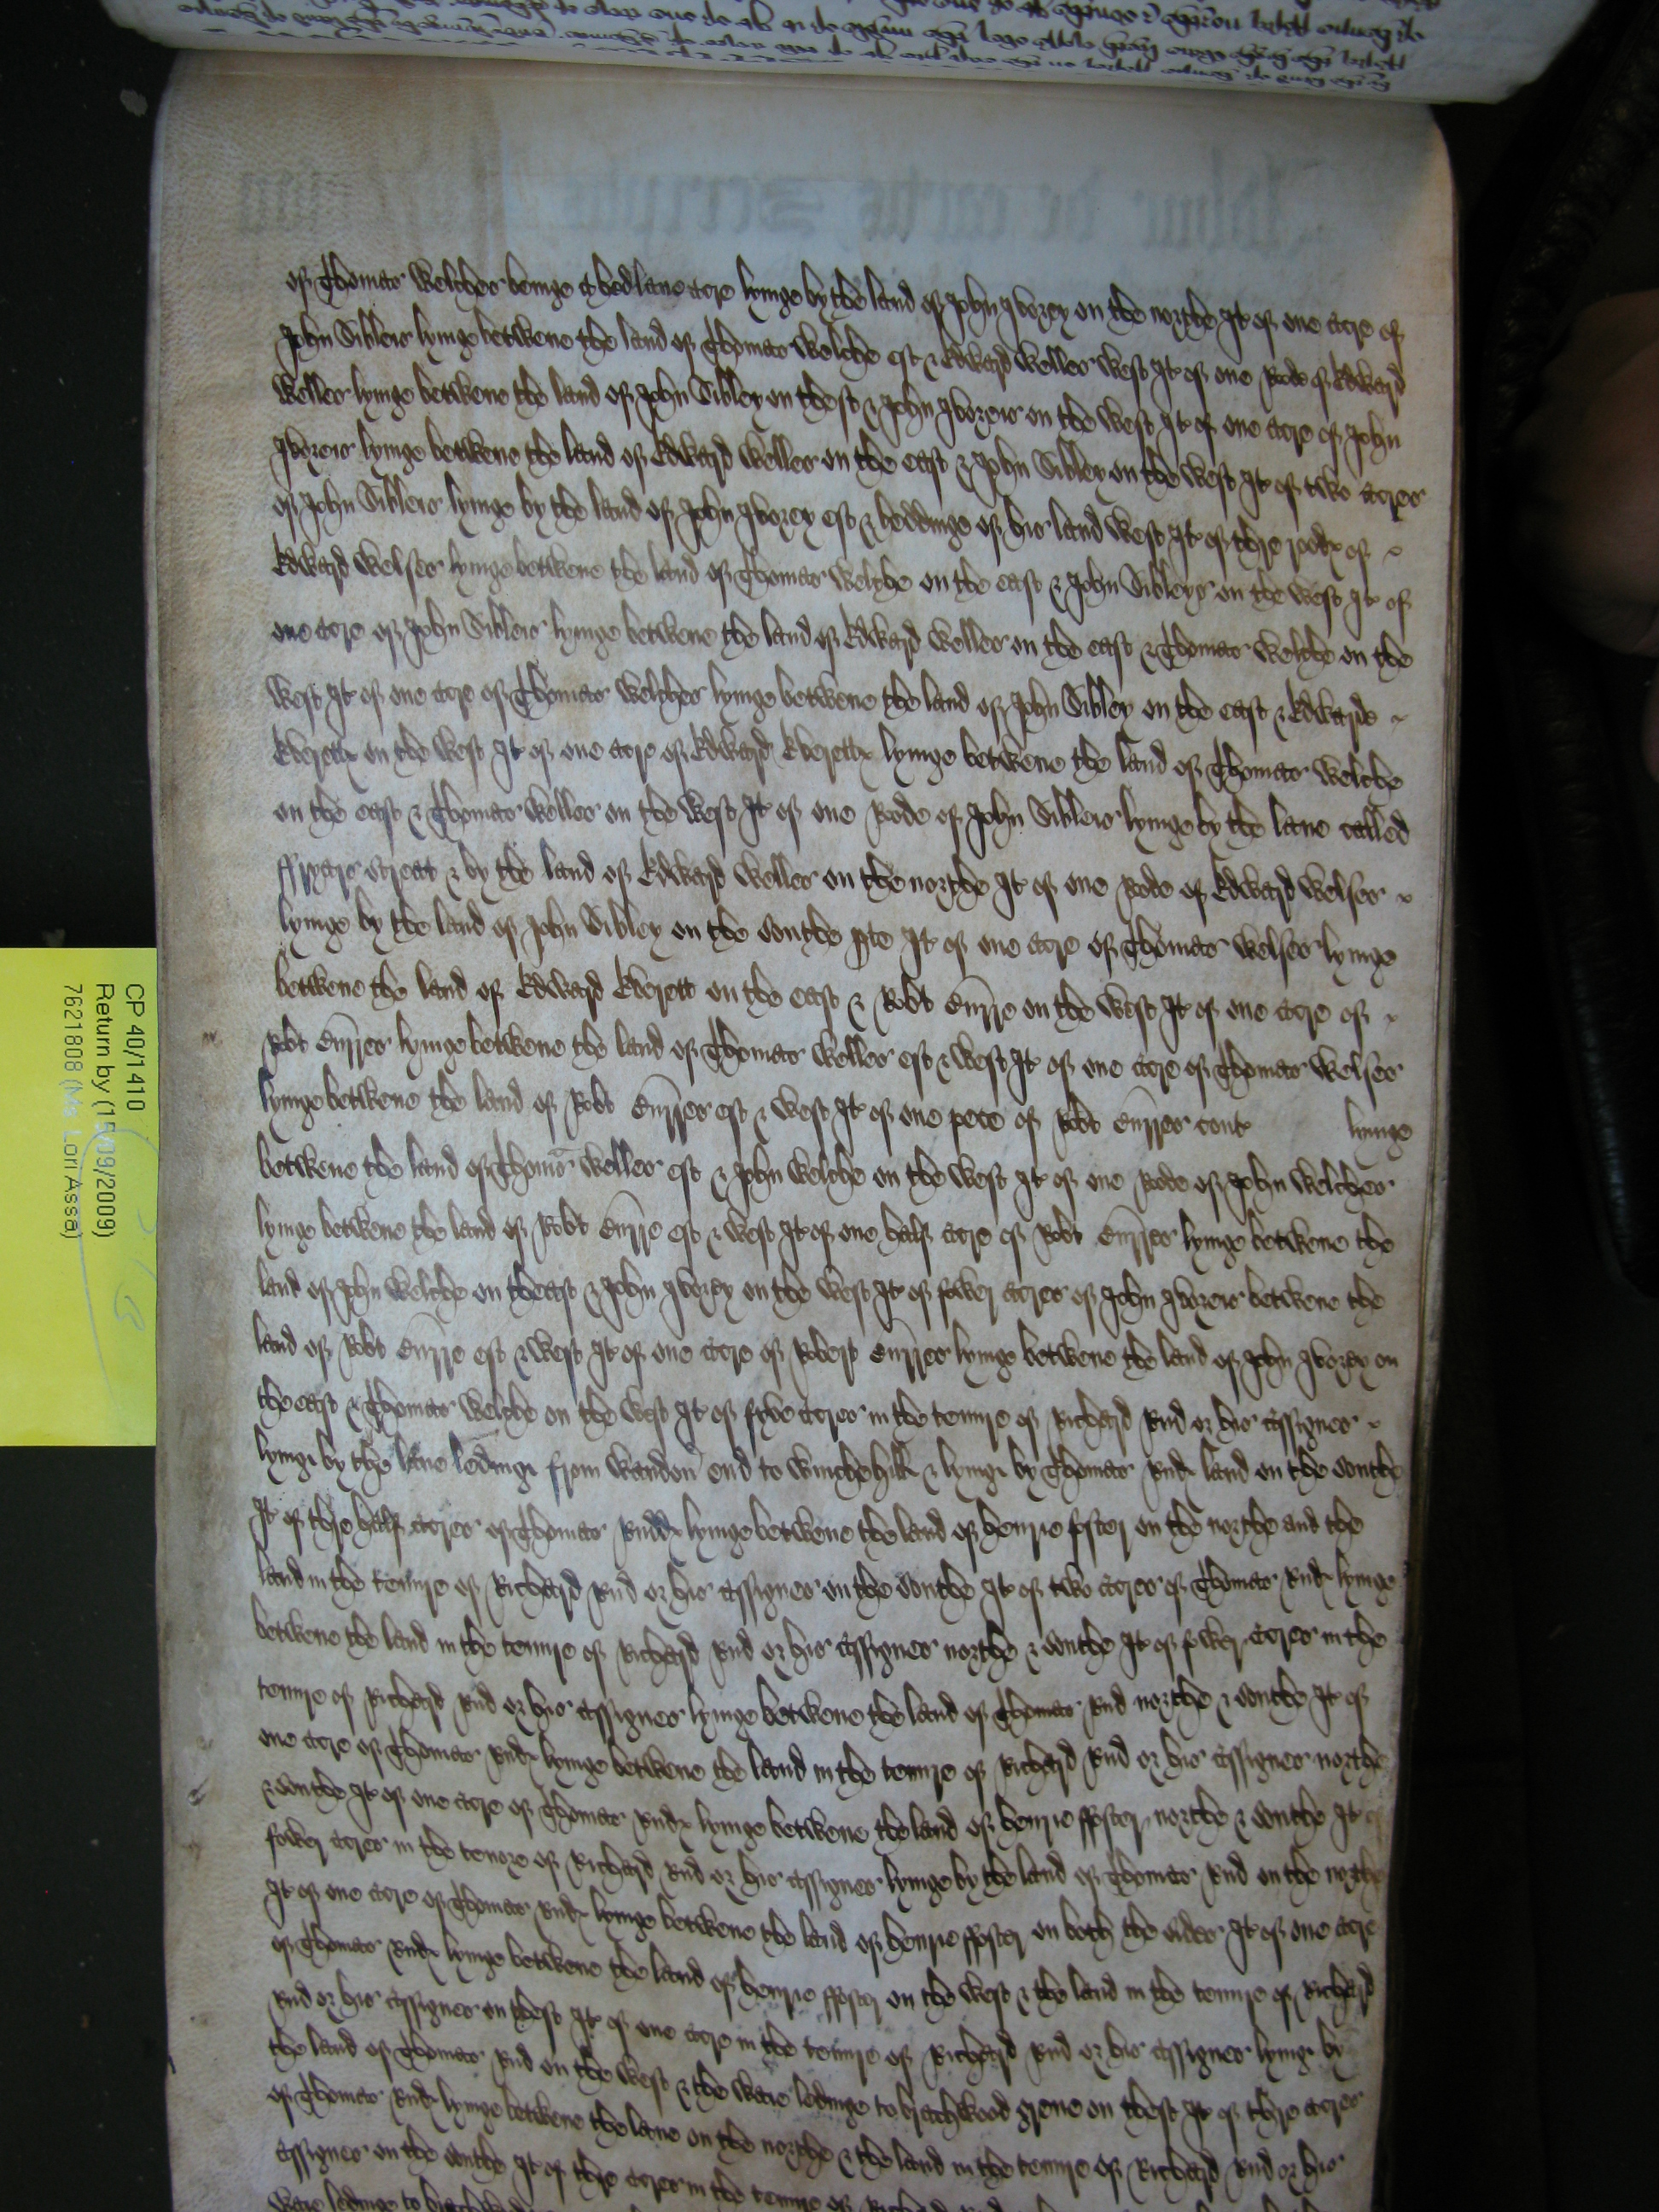 of Thomas Welches beinge a hedlane acre lyinge by the land of John Ivorey on the northe It of one acre of
John Sibleis lyinge betwene the land of Thomas Welche est & Edward Welles West It of one Rode of Edward
Welles lyinge betwene the land of John Sibley on thest & John Ivoreis on the West It of one acre of John
Ivoreis lyinge betwene the land of Edward Welles on the east & John Sibley on the West It of two acres
of John Sibleis lyinge by the land of John Ivorey est & heddinge of his land West It of thre rodes of
Edward Welses lyinge betwene the land of Thomas Welche on the east & John Sibleys on the West It of
one acre of John Sibleis lyinge betwene the land of Edward Welles on the east & Thomas Welche on the
West It of one acre of Thomas Welches lyinge betwene the land of John Sibley on the east & Edwarde
Everettes on the West It of one acre of Edward Everettes lyinge betwene the land of Thomas Welche
on the east & Thomas Welles on the West It of one Rode of John Sibleis lyinge by the lane called
ffryars streat & by the land of Edward Welles on the northe It of one Rode of Edward Welses
lyinge by the land of John Sibley on the southe pte It of one acre of Thomas Welses lyinge
betwene the land of Edward Everett on the east & Robt Curre on the West It of one acre of
Robt Curres lyinge betwene the land of Thomas Welles est & West It of one acre of Thomas Welses
lyinge betwene the land of Robt Curres est & West It of one pece of Robt Curres cont lyinge
betwene the land of Thomas Welles est & John Welche on the West It of one Rode of John Welches
lyinge betwene the land of Robt Curre est & West It of one half acre of Robt Curres lyinge betwene the
land of John Welche on theast & John Ivorey on the West It of fower acres of John Ivoreis betwene the
land of Robt Curre est & West It of one acre of Robert Curres lyinge betwene the land of John Ivorey on
the east & Thomas Welche on the West It of fyve acres in the tenure of Richard Rud or his assignes
lyinge by the lane ledinge from Wandon end to Winchehill & lyinge by Thomas Rudes land on the southe
It of thre half acres of Thomas Ruddes lyinge betwene the land of henrie foster on the northe and the
land in the tenure of Richard Rud or his assignes on the southe It of two acres of Thomas Rudes lyinge
betwene the land in the tenure of Richard Rud or his assignes northe & southe It of fower acres in the
tenure of Richard Rud or his assignes lyinge betwene the land of Thomas Rud northe & southe It of
one acre of Thomas Rudes lyinge betwene the land in the tenure of Richard Rud or his assignes northe
& southe It of one acre of Thomas Rudes lyinge betwene the land of henrie ffoster northe & southe It of
fower acres in the tenore of Richard Rud or his assignes lyinge by the land of Thomas Rud on the northe
It of one acre of Thomas Rudes lyinge betwene the land of henrie ffoster on both the sides It of one acre
of Thomas Rudes lyinge betwene the land of henrie ffoster on the West & the land in the tenure of Richard
Rud or his assignes on thest It of one acre in the tenure of Richard Rud or his assignes lyinge by
the land of Thomas Rud on the West & the Waie ledinge to brachwood grene on thest It of thre acres
of Thomas Rudes lyinge betwene the lane on the northe & the land in the tenure of Richard Rud or his
assignes on the southe It of thre acres in the tenure of Richard
Waie ledinge to
CP 40/1410
Return by (15/09/2009)
7621808 (Ms Lori Assa)